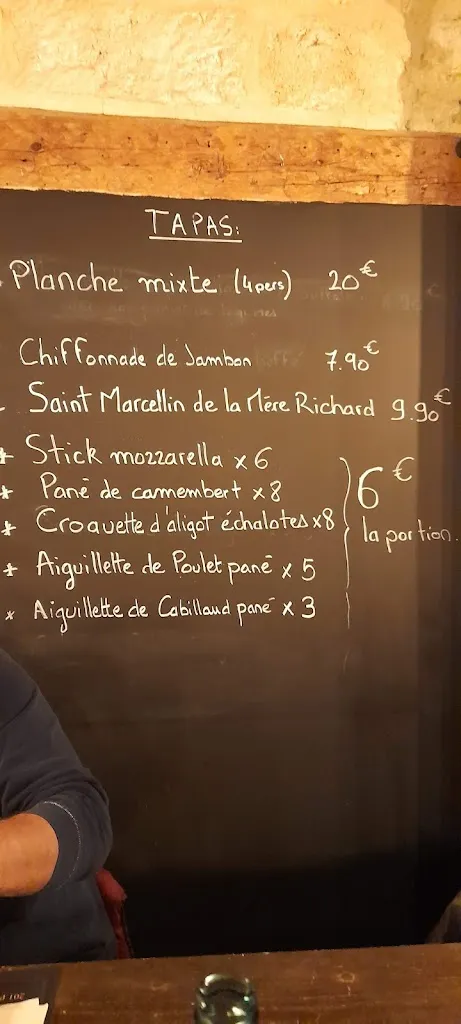 TAPAS:
Planche mixte (4 pers) 20€
Chiffonnade de Jambon 7.90€
Saint Marcellin de la Mère Richard 9.90€
+ Stick mozzarella x 6
+ Pané de camembert x 8
+ Croquette d'aligot échalotes x8
+ Aiguillette de Poulet pané x 5
x Aiguillette de Cabillaud pané x 3
6€
la portion.